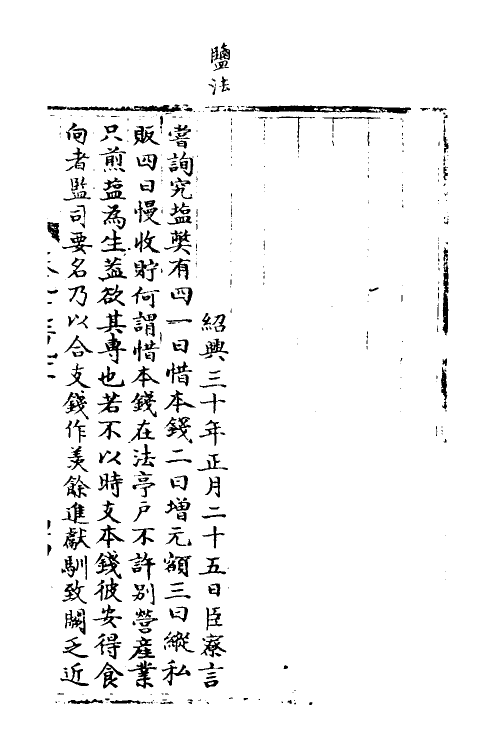 鹽法
紹興三十年正月二十五日臣寮言
嘗詢究塩弊有四一曰惜本錢二曰增元額三曰縱私
販四曰慢收貯何謂惜本錢在法亭戶不許別營產業
只煎塩為生益欲其專也若不以時支本錢彼安得食
向者監司要名乃以合支錢作羨餘進獻馴致闕乏近